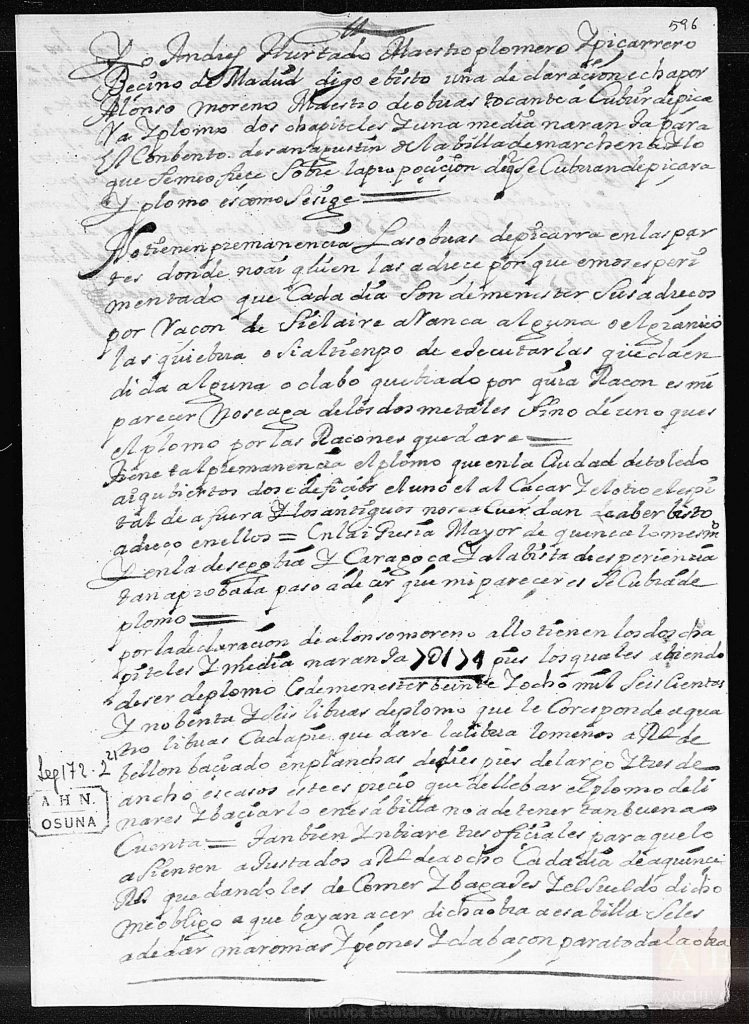 596
Yo Andres Hurtado Maestro plomero Y picarrero
Becino de Madrid digo e bisto una declaracion echa por
Alonso Moreno Maestro de obras tocante a Cubrir de pica
Ra Y plomo dos chapiteles Y una media naranja para
El Conbento de san agustin de la billa de marchena Y lo
que se me ofrece sobre la proposicion de q se Cubran de picara
Y plomo es como se sige
No tienen premanencia Las obras de picarra en las par
tes donde no ai quien las aderece por que emos esperi
mentado que Cada dia son de menester sus aderecos
por Racon de si el aire aRanca alguna o el graniço
las quiebra o si al tienpo de executarlas queda en
dida alguna o clabo quebrado por cuia Racon es mi
parecer No se aga de los dos metales sino de uno que es
el plomo por las Racones que dare
tiene tal premanencia el plomo que en la Ciudad de toledo
ai qubiertos dos edeficios el uno el al Cacar Y el otro el espi
tal de afuera Y los antiguos no se a Cuerdan aber bisto
adreço en ellos = En la iglesia Mayor de quenca lo mesmo
Y en la de segobia Y Caragoça Y a la bista de esperiencia
tan aprobada paso a decir que mi parecer es se Cubra de
plomo
por la declaracion de alonso moreno allo tienen los dos cha
piteles Y media naranja 7174 pies los quales abiendo
de ser de plomo Es de menester beinte Y ocho mil seis cientas
Y nobenta Y seis libras de plomo que le Corresponde a qua
tro libras Cada pie que dare la libra lo menos a Rl de
bellon baciado en planchas de diez pies de largo Y tres de
ancho escasos este es precio que de llebar el plomo de li
nares Y baciarlo en esa billa no a de tener tan buena
Cuenta = Tanbien Ynbiare tres oficiales para que lo
asienten ajustados a Rl de a ocho Cada dia de a quince
Rs que dandoles de Comer Y bagajes Y el sueldo dicho
me obligo a que bayan acer dicha obra a esa billa se les
a de dar maromas Y peones Y clabacon para toda la obra
Leg 172-2
21
A H N.
OSUNA
Archivos Estatales, https://pares.cultura.gob.es